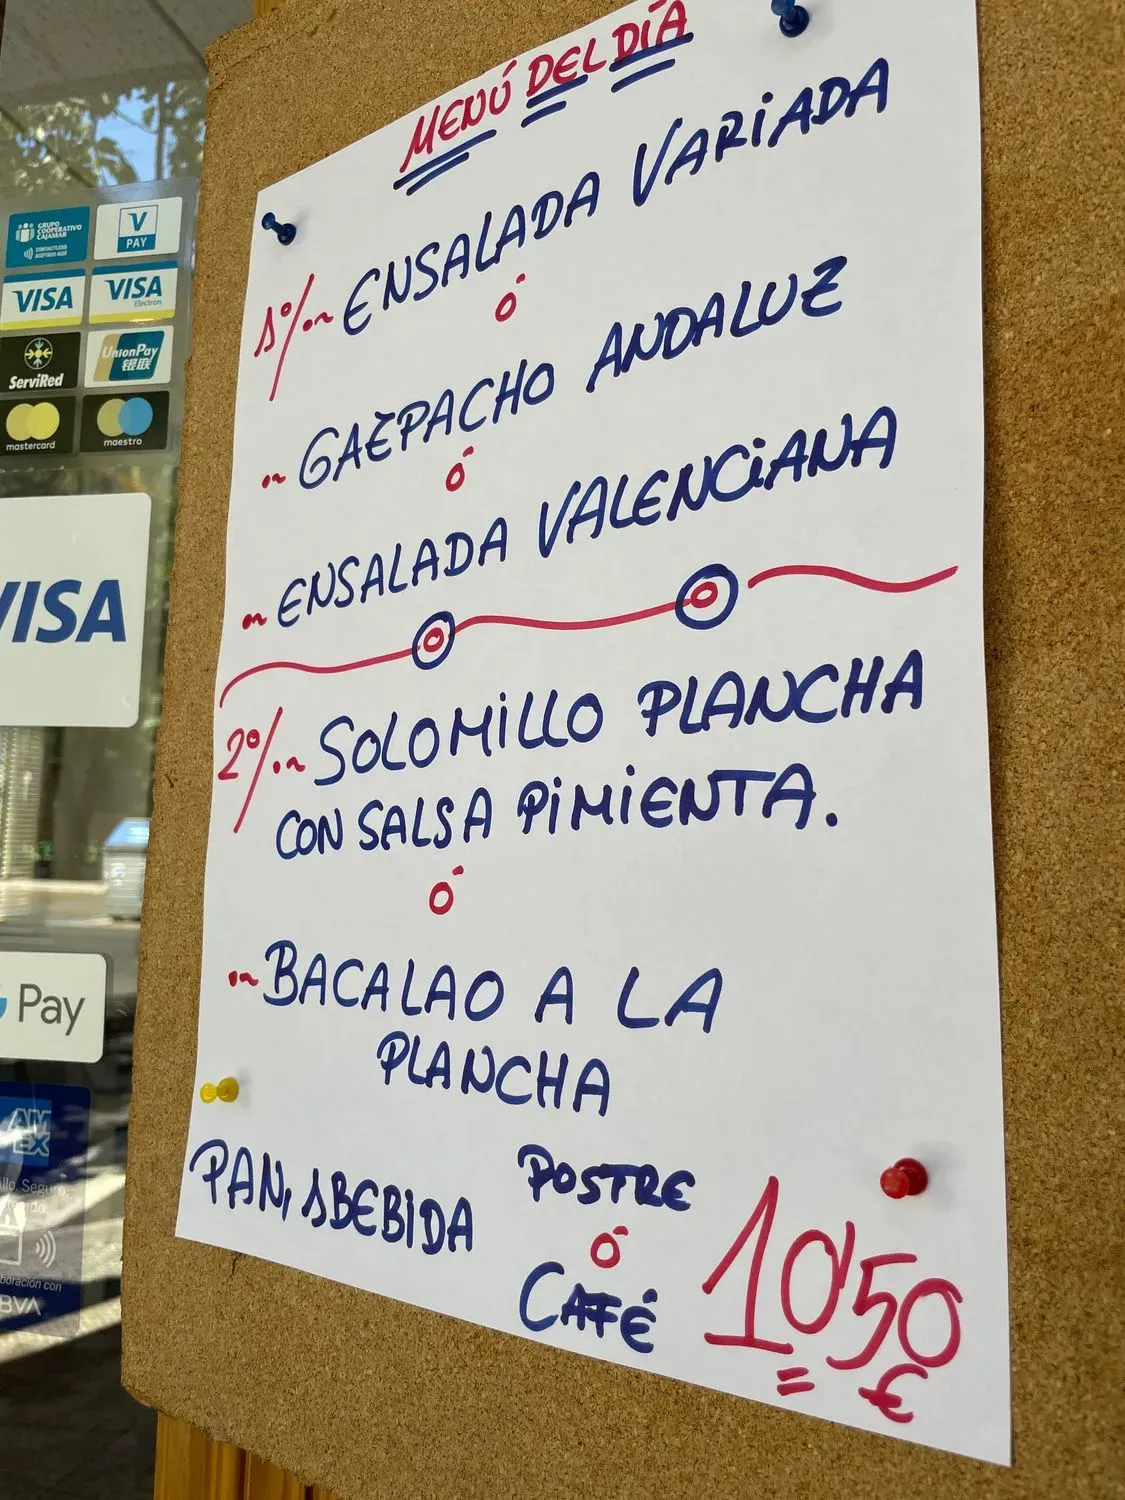 MENÚ DEL DÍA
1º/.~ ENSALADA VARIADA
Ó
~ GAZPACHO ANDALUZ
Ó
~ ENSALADA VALENCIANA
2º/.~ SOLOMILLO PLANCHA
CON SALSA PIMIENTA.
Ó
~ BACALAO A LA
PLANCHA
PAN, 1 BEBIDA
POSTRE
Ó
CAFÉ
10'50
€
GRUPO
COOPERATIVO
CAJAMAR
CONTACTLESS
ACEPTADO AQUÍ
V
PAY
VISA
VISA
Electron
ServiRed
UnionPay
银联
mastercard
maestro
VISA
Pay
AM
EX
BVA